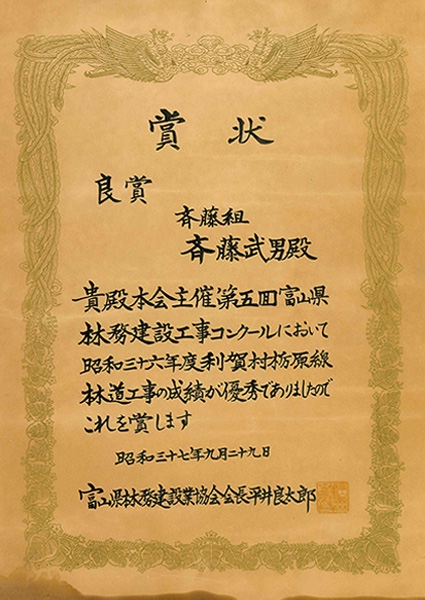 賞状
良賞
斉藤組
斉藤武男殿
貴殿本会主催第五回富山県
林務建設工事コンクールにおいて
昭和三十六年度利賀村栃原線
林道工事の成績が優秀でありましたので
これを賞します
昭和三十七年九月二十九日
富山県林務建設業協会会長平井良太郎